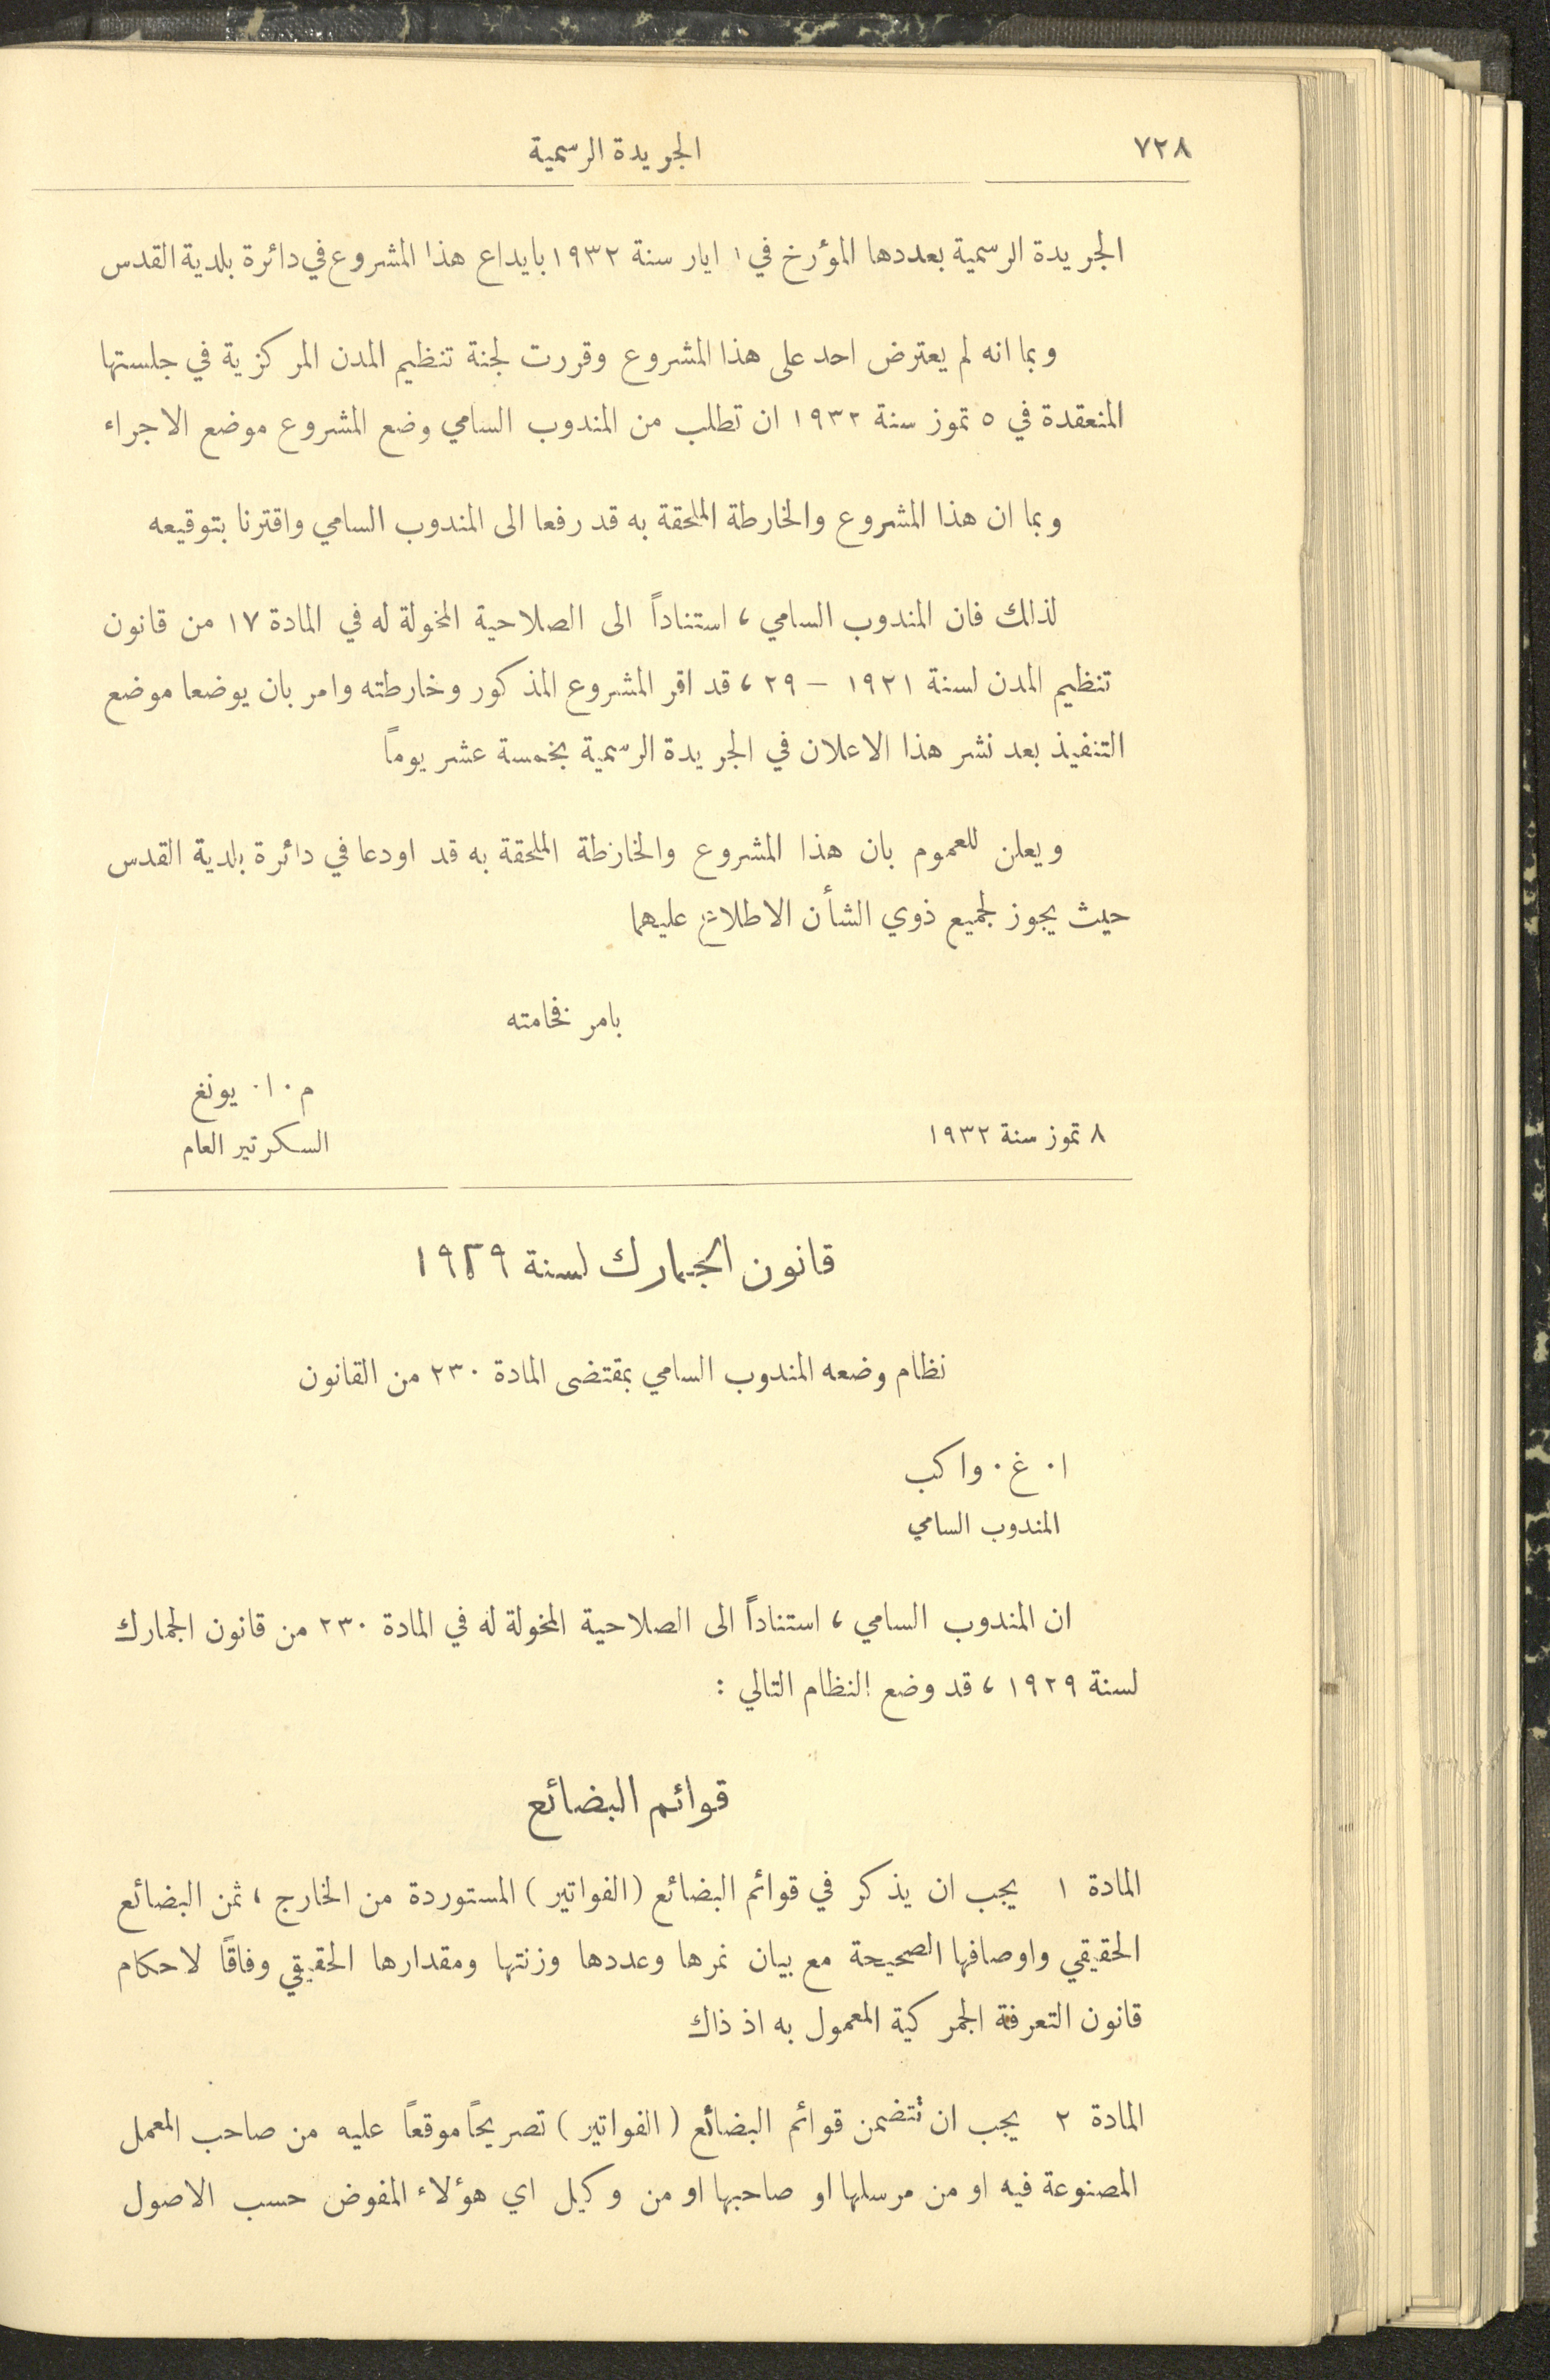 ٧٢٨
الجريدة الرسمية
الجريدة الرسمية بعددها المؤرخ في ١ ايار سنة ١٩٣٢ بايداع هذا المشروع في دائرة بلدية القدس
وبما انه لم يعترض احد على هذا المشروع وقررت لجنة تنظيم المدن المركزية في جلستها
المنعقدة في ٥ تموز سنة ١٩٣٢ ان تطلب من المندوب السامي وضع المشروع موضع الاجراء
وبما ان هذا المشروع والخارطة الملحقة به قد رفعا الى المندوب السامي واقترنا بتوقيعه
لذلك فان المندوب السامي، استناداً الى الصلاحية المخولة له في المادة ١٧ من قانون
تنظيم المدن لسنة ١٩٢١ – ٢٩، قد اقر المشروع المذكور وخارطته وامر بان يوضعا موضع
التنفيذ بعد نشر هذا الاعلان في الجريدة الرسمية بخمسة عشر يوماً
ويعلن للعموم بان هذا المشروع والخارطة الملحقة به قد اودعا في دائرة بلدية القدس
حيث يجوز لجميع ذوي الشأن الاطلاع عليهما
بامر فخامته
م. ا. يونغ
السكرتير العام
٨ تموز سنة ١٩٣٢
قانون الجمارك لسنة ١٩٢٩
نظام وضعه المندوب السامي بمقتضى المادة ٢٣٠ من القانون
ا. غ. واكب
المندوب السامي
ان المندوب السامي، استناداً الى الصلاحية المخولة له في المادة ٢٣٠ من قانون الجمارك
لسنة ١٩٢٩، قد وضع النظام التالي :
قوائم البضائع
المادة ١ يجب ان يذكر في قوائم البضائع (الفواتير) المستوردة من الخارج، ثمن البضائع
الحقيقي واوصافها الصحيحة مع بيان نمرها وعددها وزنتها ومقدارها الحقيقي وفاقاً لاحكام
قانون التعرفة الجمركية المعمول به اذ ذاك
المادة ٢ يجب ان تتضمن قوائم البضائع (الفواتير) تصريحاً موقعاً عليه من صاحب المعمل
المصنوعة فيه او من مرسلها او صاحبها او من وكيل اي هؤلاء المفوض حسب الاصول